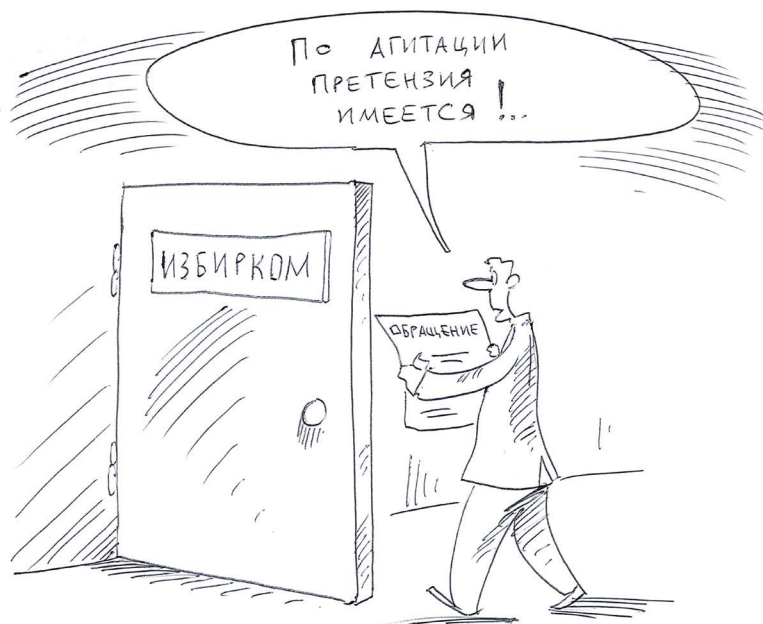 ПО АГИТАЦИИ
ПРЕТЕНЗИЯ
ИМЕЕТСЯ!..
ИЗБИРКОМ
ОБРАЩЕНИЕ